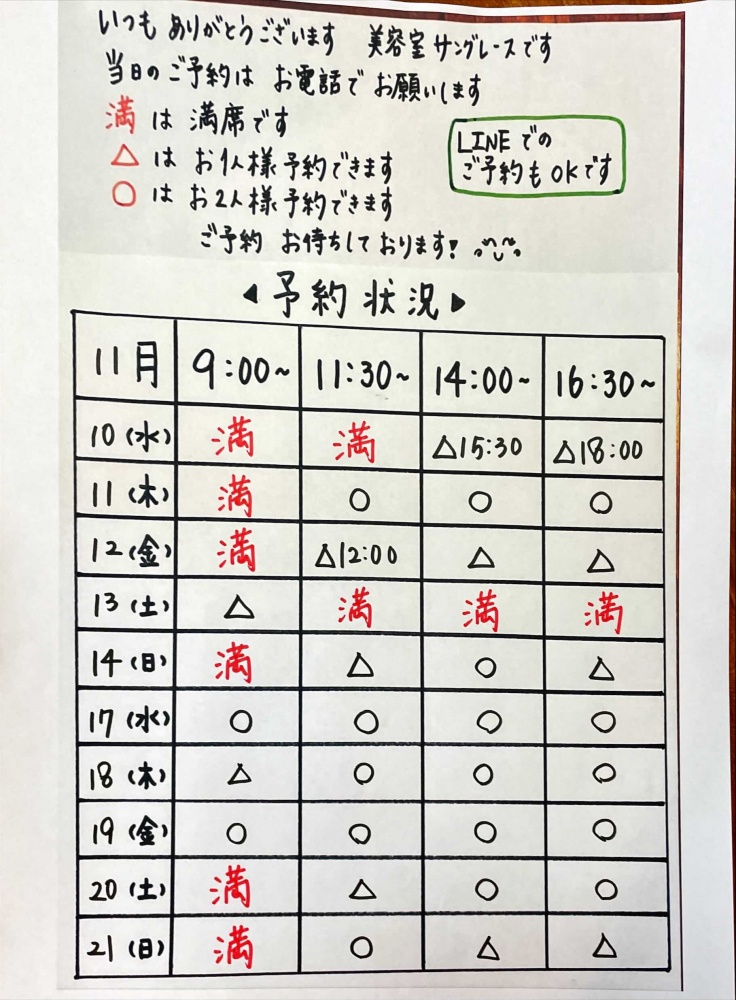 いつも ありがとうございます 美容室 サングレースです
当日の ご予約は お電話で お願いします
満 は 満席です
△ は お1人様 予約できます
○ は お2人様 予約できます
LINEでの
ご予約も OKです
ご予約 お待ちしております!
◀ 予約 状況 ▶
11月 9:00~ 11:30~ 14:00~ 16:30~
10(水) 満 満 △15:30 △18:00
11(木) 満 ○ ○ ○
12(金) 満 △12:00 △ △
13(土) △ 満 満 満
14(日) 満 △ ○ △
17(水) ○ ○ ○ ○
18(木) △ ○ ○ ○
19(金) ○ ○ ○ ○
20(土) 満 △ ○ ○
21(日) 満 ○ △ △